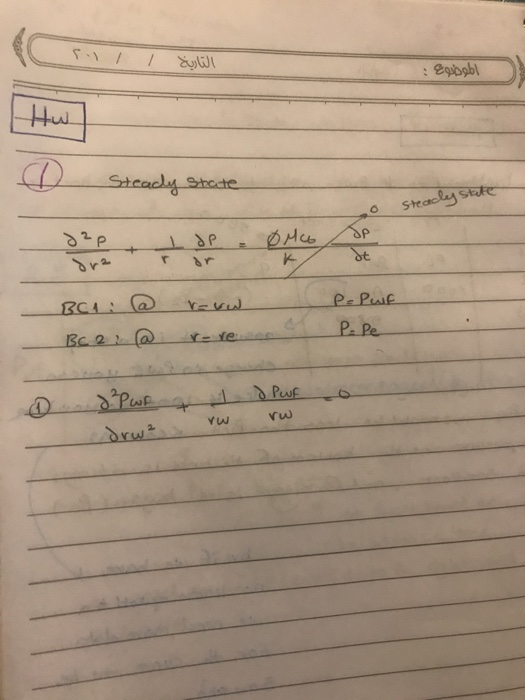 الموضوع :
التاريخ / / ٢٠١
Hw
1 Steady state
∂²P/∂r² + 1/r ∂P/∂r = ØMc/K ∂P/∂t → 0 steady state
BC1: @ r=rw P=Pwf
BC2: @ r=re P=Pe
① ∂²Pwf/∂rw² + 1/rw ∂Pwf/rw =0